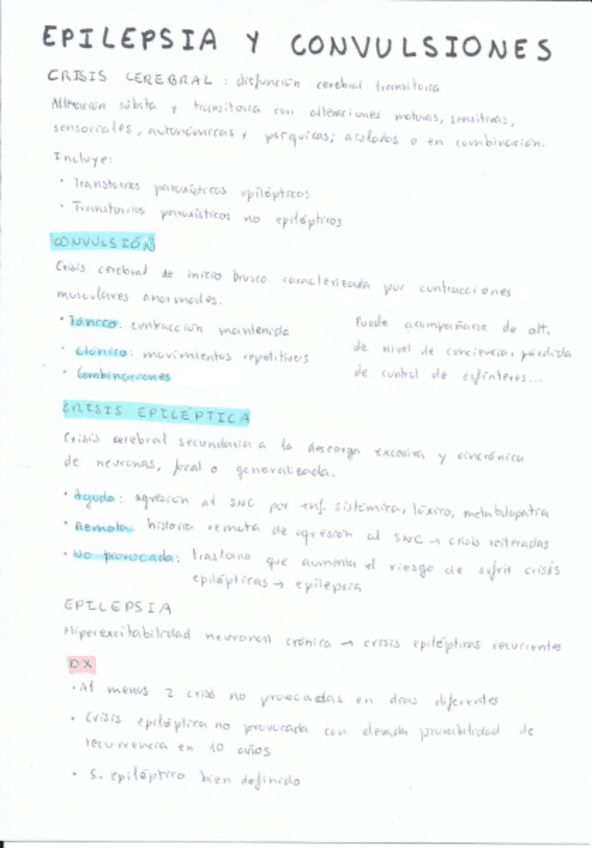 EPILEPSIA Y CONVULSIONES
CRISIS CEREBRAL: disfunción cerebral transitoria
Alteración súbita y transitoria con alteraciones motoras, sensitivas,
sensoriales, autonómicas y psíquicas; aislados o en combinación.
Incluye:
· Transtornos paroxísticos epilépticos
· Transtornos paroxísticos no epilépticos
CONVULSIÓN
Crisis cerebral de inicio brusco caracterizada por contracciones
musculares anormales.
· Tónico: contracción mantenida
· Clónico: movimientos repetitivos
· Combinaciones
Puede acompañarse de alt.
de nivel de conciencia, pérdida
de control de esfínteres...
CRISIS EPILÉPTICA
Crisis cerebral secundaria a la descarga excesiva y sincrónica
de neuronas, focal o generalizada.
· Aguda: agresión al SNC por enf. sistémica, tóxico, metabolopatía
· Remota: historia remota de agresión al SNC → crisis reiteradas
· No provocada: trastorno que aumenta el riesgo de sufrir crisis
epilépticas → epilepsia
EPILEPSIA
Hiperexcitabilidad neuronal crónica → crisis epilépticas recurrentes
DX
· Al menos 2 crisis no provocadas en días diferentes
· Crisis epiléptica no provocada con elevada probabilidad de
recurrencia en 10 años
· S. epiléptico bien definido